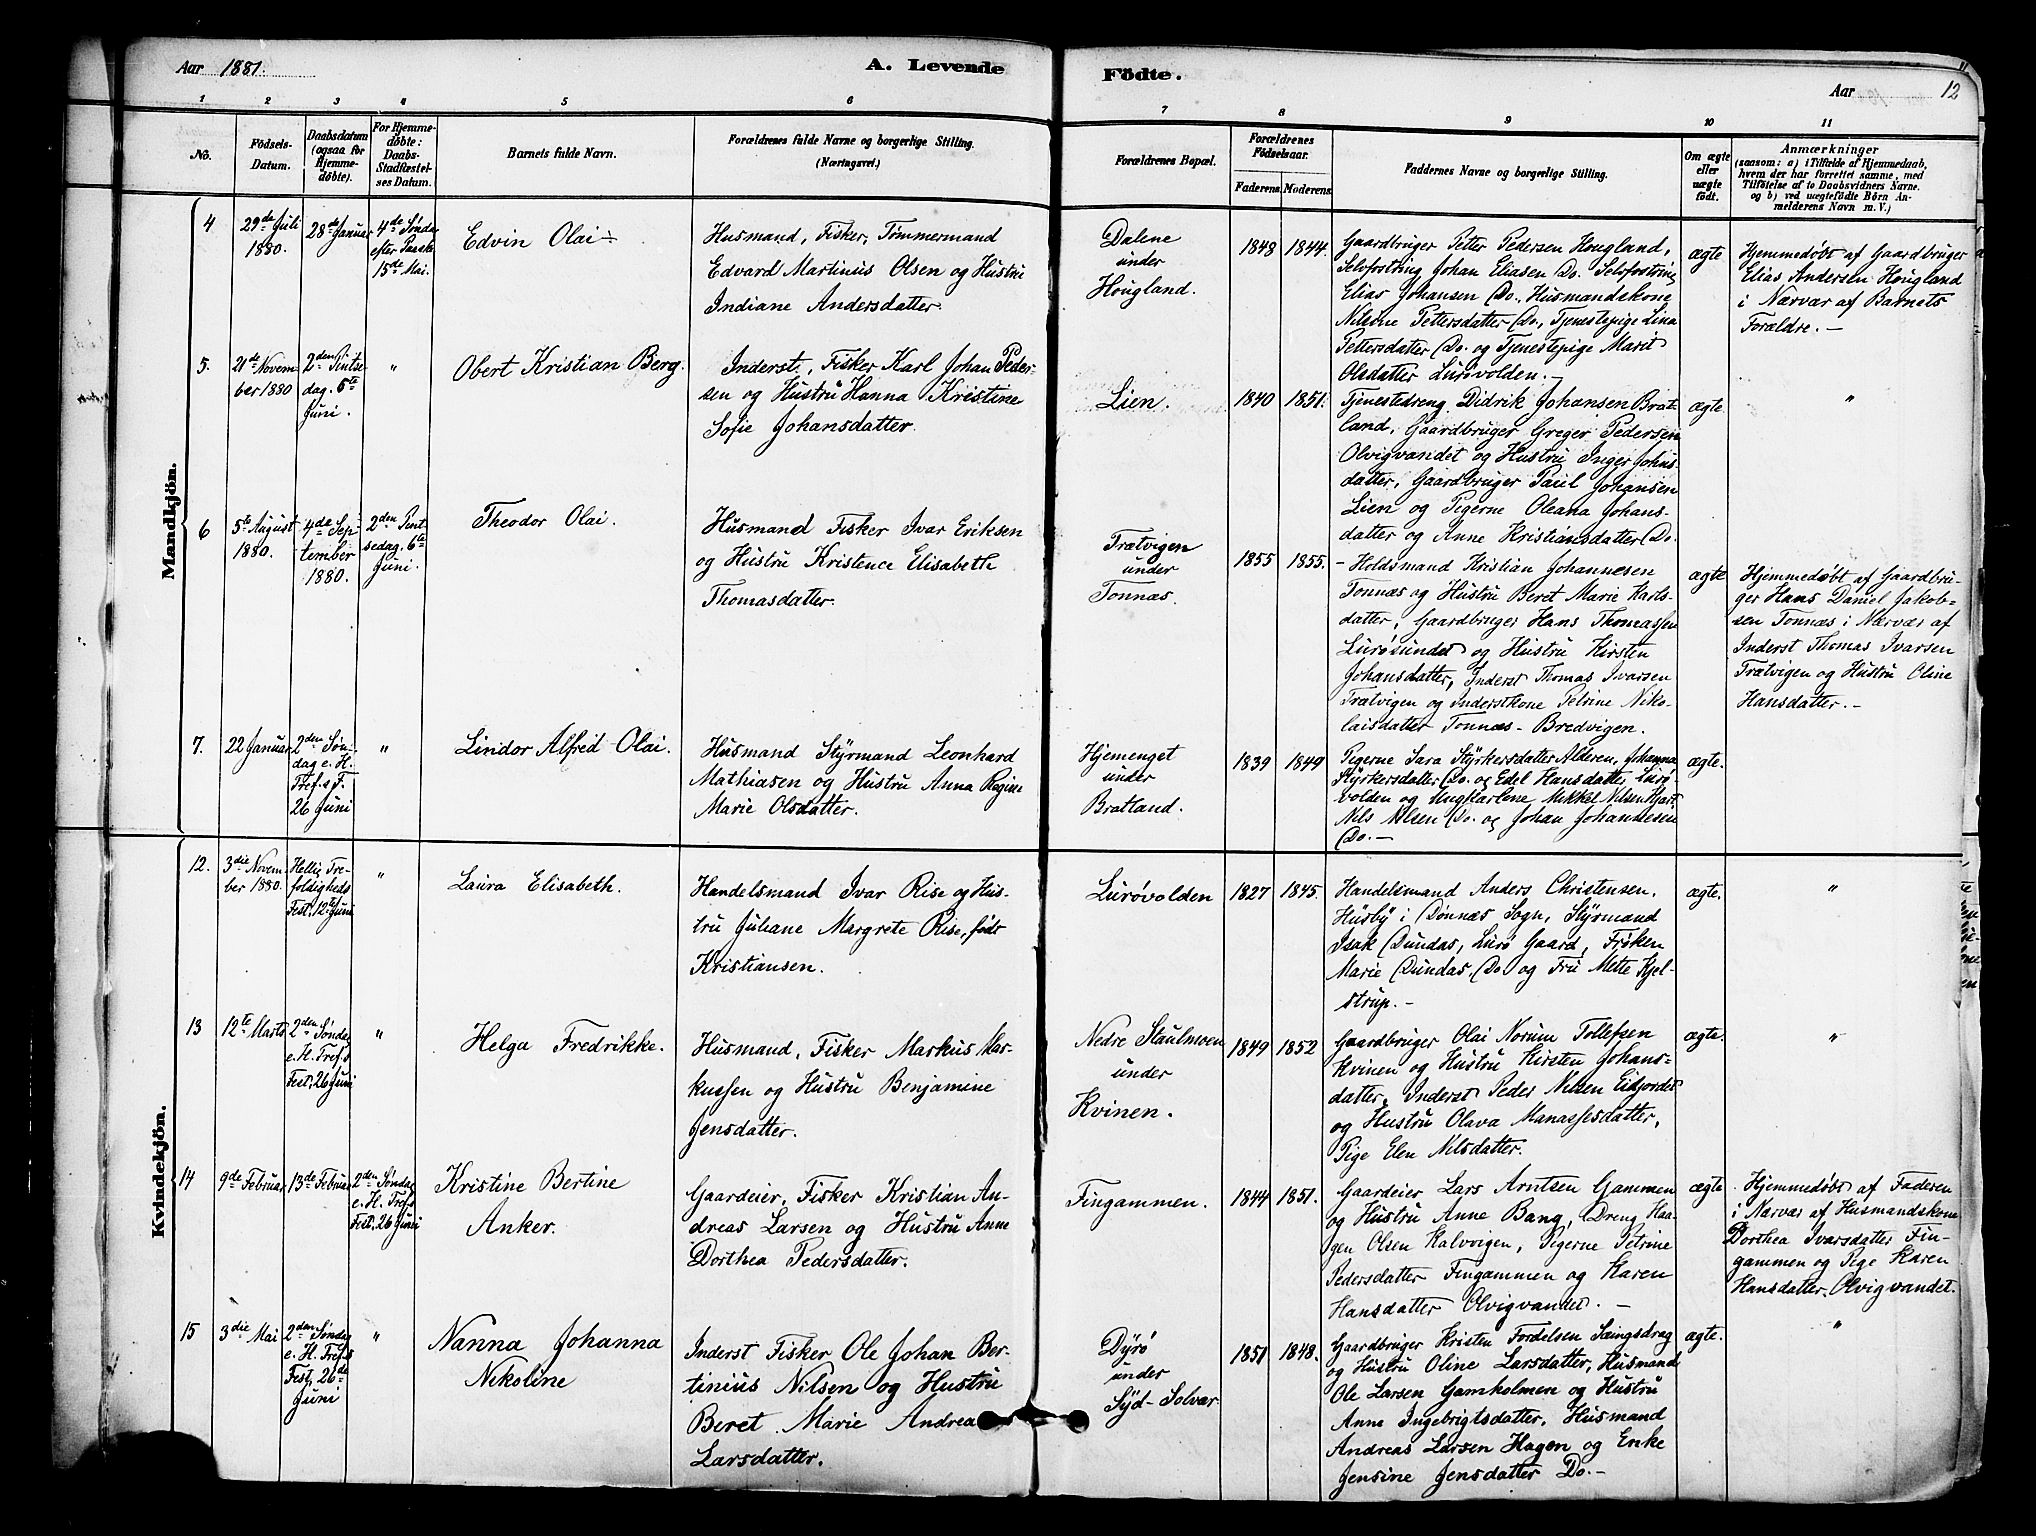 Aar 1881.
A. Levende Födte.
Aar
12
1
2
3
4
5
6
7
8
9
10
11
No.
Födsels-
Datum.
Daabsdatum
(ogsaa for
Hjemme-
döbte).
For Hjemme-
döbte:
Daabs-
Stadfæstel-
ses Datum.
Barnets fulde Navn.
Forældrenes fulde Navne og borgerlige Stilling.
(Næringsvei.)
Forældrenes Bopæl.
Forældrenes
Födselsaar.
Faderens.
Moderens.
Faddernes Navne og borgerlige Stilling.
Om ægte
eller
uægte
født.
Anmærkninger
(saasom: a) i Tilfælde af Hjemmedaab,
hvem der har forrettet samme, med
Tilföielse af to Daabsvidners Navne.
og b) ved uægtefödte Börn An-
melderens Navn m. V.)
Mandkjön.
4
29de Juli
1880.
28de Januar
4de Sønd.
efter Paaske
15de Mai.
Edvin Olai
Husmand, Fisker, Tømmermand
Edvard Martinus Olsen og Hustru
Indiane Andersdatter.
Dalene
under
Hougland.
1848
1844.
Gaardbruger Petter Pedersen Hougland,
Selvfostring Johan Eliasen Do. Selvfostring
Elias Johansen Do., Husmandskone
Nilsine Pettersdatter Do., Tjenestepige Lina
Pettersdatter Do. og Tjenestepige Marit
Olsdatter Lurøvolden.
ægte
Hjemmedøbt af Gaardbruger
Elias Andersen Hougland
i Nærvær af Barnets
Forældre. –
5.
21de Novem-
ber 1880
2den Pintse-
dag. 6te
Juni.
"
Obert Kristian Berg.
Inderst, Fisker Karl Johan Peder-
sen og Hustru Hanna Kristine
Sofie Johansdatter.
Lien.
1840
1851.
Tjenestedreng Didrik Johansen Brat-
land, Gaardbruger Greger Pedersen
Olvigvandet og Hustru Inger Johns-
datter, Gaardbruger Paul Johansen
Lien og Pigerne Oleana Johans-
datter og Anne Kristiansdatter Do.
ægte
"
6
5te August
1880.
4de Sep-
tember
1880.
2den Pint-
sedag. 6te
Juni.
Theodor Olai.
Husmand Fisker Ivar Eriksen
og Hustru Kristence Elisabeth
Thomasdatter.
Trætvigen
under
Tonnæs.
1855
1855.
– Holdsmand Kristian Johannesen
Tonnæs og Hustru Beret Marie Karls-
datter, Gaardbruger Hans Thomassen
Lurøsundet og Hustru Kirsten
Johansdatter, Inderst Thomas Ivarsen
Trætvigen og Inderstkone Petrine Niko-
laisdatter Tonnæs-Bredvigen.
ægte
Hjemmedøbt af Gaardbru-
ger Hans Daniel Jakob-
sen Tonnæs i Nærvær af
Inderst Thomas Ivarsen
Trætvigen og Hustru Oline
Hansdatter. –
7.
22 Januar
2den Søn-
dag e. H.
Tref.s F.
26 Juni
"
Lindor Alfred Olai.
Husmand Styrmand Leonhard
Mathiasen og Hustru Anna Regine
Marie Olsdatter.
Hjemenget
under
Bratland.
1839
1849
Pigerne Sara Styrkersdatter Alderen, Johanna
Styrkersdatter Do. og Edel Hansdatter Lurø-
volden og Ungkarlene Mikkel Nilsen
Nils Nilsen Do. og Johan Johannesen
Do. –
ægte.
Kvindekjön.
12.
3die Novem-
ber 1880.
Hellig Tre-
foldigheds
Fest, 12te Juni
"
Laura Elisabeth.
Handelsmand Ivar Rise og Hus-
tru Juliane Margrete Rise, født
Kristiansen.
Lurøvolden
1827
1845.
Handelsmand Anders Christensen.
Husby i Dønnæs Sogn, Styrmand
Isak Dundas, Lurø Gaard, Frøken
Marie Dundas, Do. og Fru Mette Kjel-
strup. –
ægte.
"
13
12te Marts
2den Søndag
e. H. Tref.s
Fest, 26 Juni
"
Helga Fredrikke.
Husmand, Fisker Markus Mar-
kussen og Hustru Benjamine
Jensdatter.
Nedre Staulmoen
under
Kvinen.
1849
1852
Gaardbruger Olai Norum Tollefsen
Kvinen og Hustru Kirsten Johans-
datter, Inderst Peder Nilsen Eidfjordet
og Hustru Olava Manassesdatter,
Pige Elen Nilsdatter.
ægte.
"
14
9de Februar
13de Februar
2den Søndag
e. H. Tref.s
Fest, 26 Juni
Kristine Bertine
Anker.
Gaardeier, Fisker Kristian An-
dreas Larsen og Hustru Anne
Dorthea Pedersdatter.
Fingammen.
1844
1851.
Gaardeier Lars Arntsen Gammen
og Hustru Anne Bang, Dreng Haa-
gen Olsen Kalvvigen, Pigerne Petrine
Pedersdatter Fingammen og Karen
Hansdatter Olvigvandet. –
ægte
Hjemmedøbt af Faderen
i Nærvær af Husmandskone
Dorthea Ivarsdatter Fin-
gammen og Pige Karen
Hansdatter Olvigvandet.
15
3die Mai
2den Søndag
e. H. Tref.s
Fest, 26de
Juni
"
Nanna Johanna
Nikoline
Inderst Fisker Ole Johan Ber-
tinius Nilsen og Hustru
Beret Marie Andrea
Larsdatter.
Dyrø
under
Syd-Solvær
1851
1848.
Gaardbruger Kristen Fordelsen Sæingsdrag
og Hustru Oline Larsdatter, Husmand
Ole Larsen Gamholmen og Hustru
Anne Ingebrigtsdatter, Husmand
Andreas Larsen Hagen og Enke
Jensine Jensdatter Do. –
ægte.
"